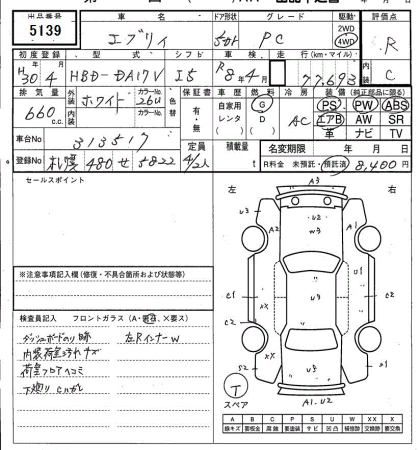 出品番号 車名 ドア形状 グレード 駆動 評価点
5139 エブリィ PC 2WD 4WD R
初度登録 型式 シフト 車検 走行(km・マイル) 内装
H30 4 HBD-DA17V I5 R8年4月 77,693 C
排気量 外装 カラーNo. 色替 カラーNo. 保証書 車歴 燃料 冷房 装備(純正部品に限る)
660 c.c. ホワイト 26U 有・無 自家用 レンタ ( ) G D ( ) AC PS PW ABS
エアB AW SR
革 ナビ TV
車台No 313517 定員 積載量 名変期限 年 月 日
登録No 札幌 480 せ 5822 4/2人 t R料金 未預託・預託済 8,400円
セールスポイント
左 右
A3
U3 A2 U2 W3 A1
C1 XX U9 C1
C2 U9 C2
S2 XX S1
A1.U2
T
スペア
※注意事項記入欄(修復・不具合箇所および状態等)
検査員記入 フロントガラス(A・飛石、X要ス)
ダッシュボードのり跡 左RインナーW
内装荷室汚れキズ
荷室フロアヘコミ
下廻りサビ
A B C P S U W X XX X
線キズ 要板金 腐蝕 要塗装 サビ 凹凸 補修跡 要交換